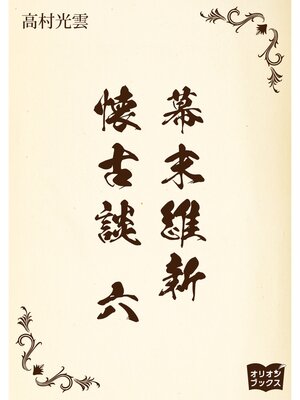 高村光雲
幕末維新
懐古談 六
オリオン
ブックス